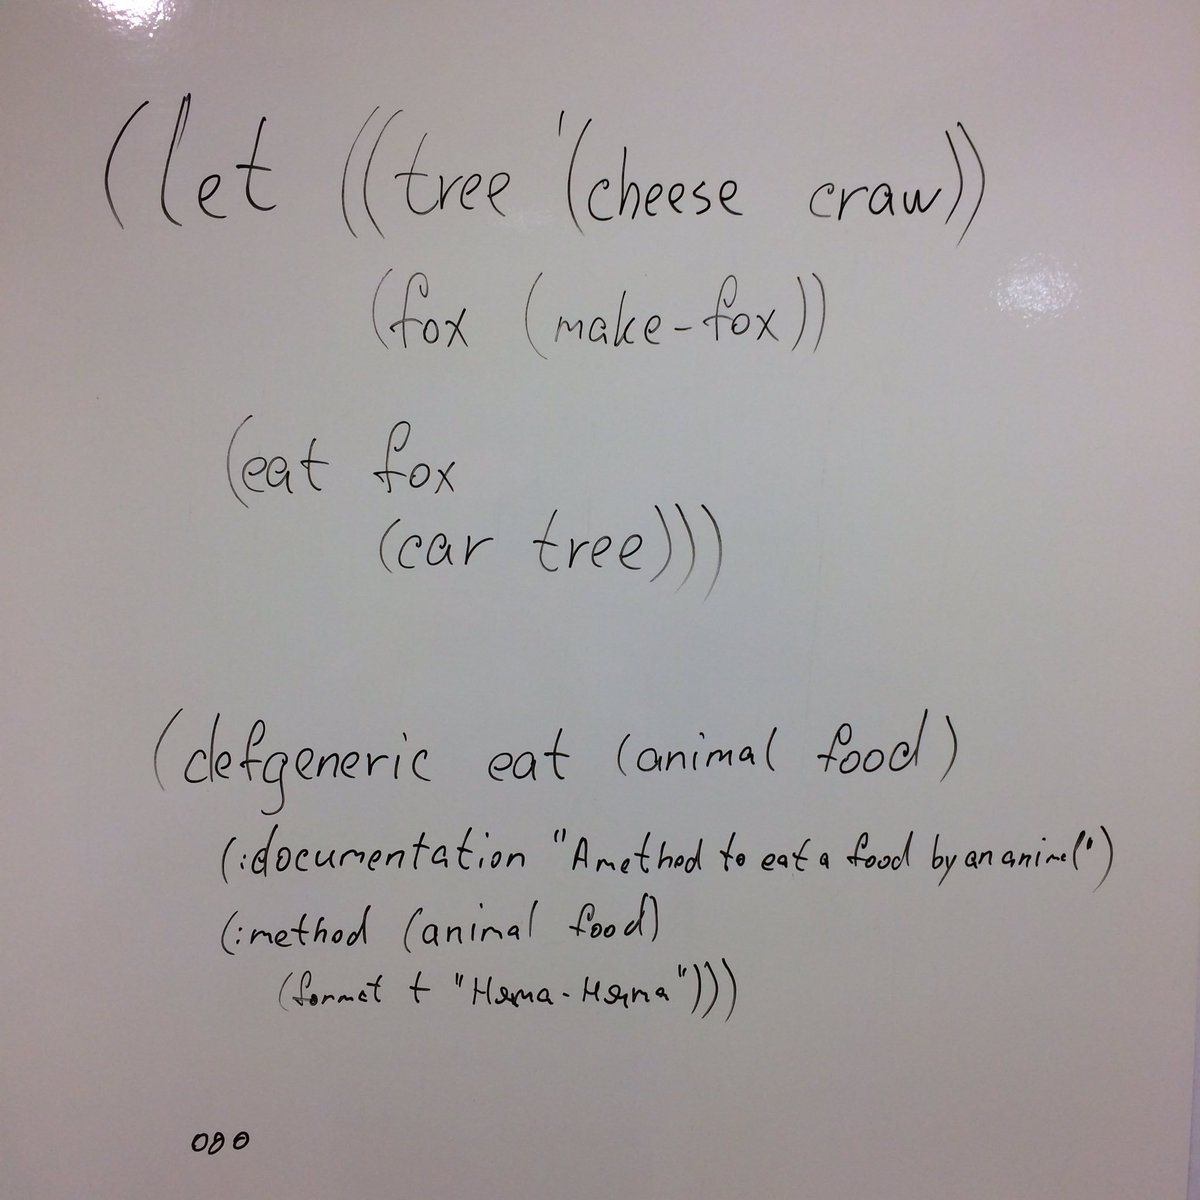 (let ((tree '(cheese craw))
(fox (make-fox))
(eat fox
(car tree)))
(defgeneric eat (animal food)
(:documentation "A method to eat a food by an animal")
(:method (animal food)
(format t "Няма-Няма")))